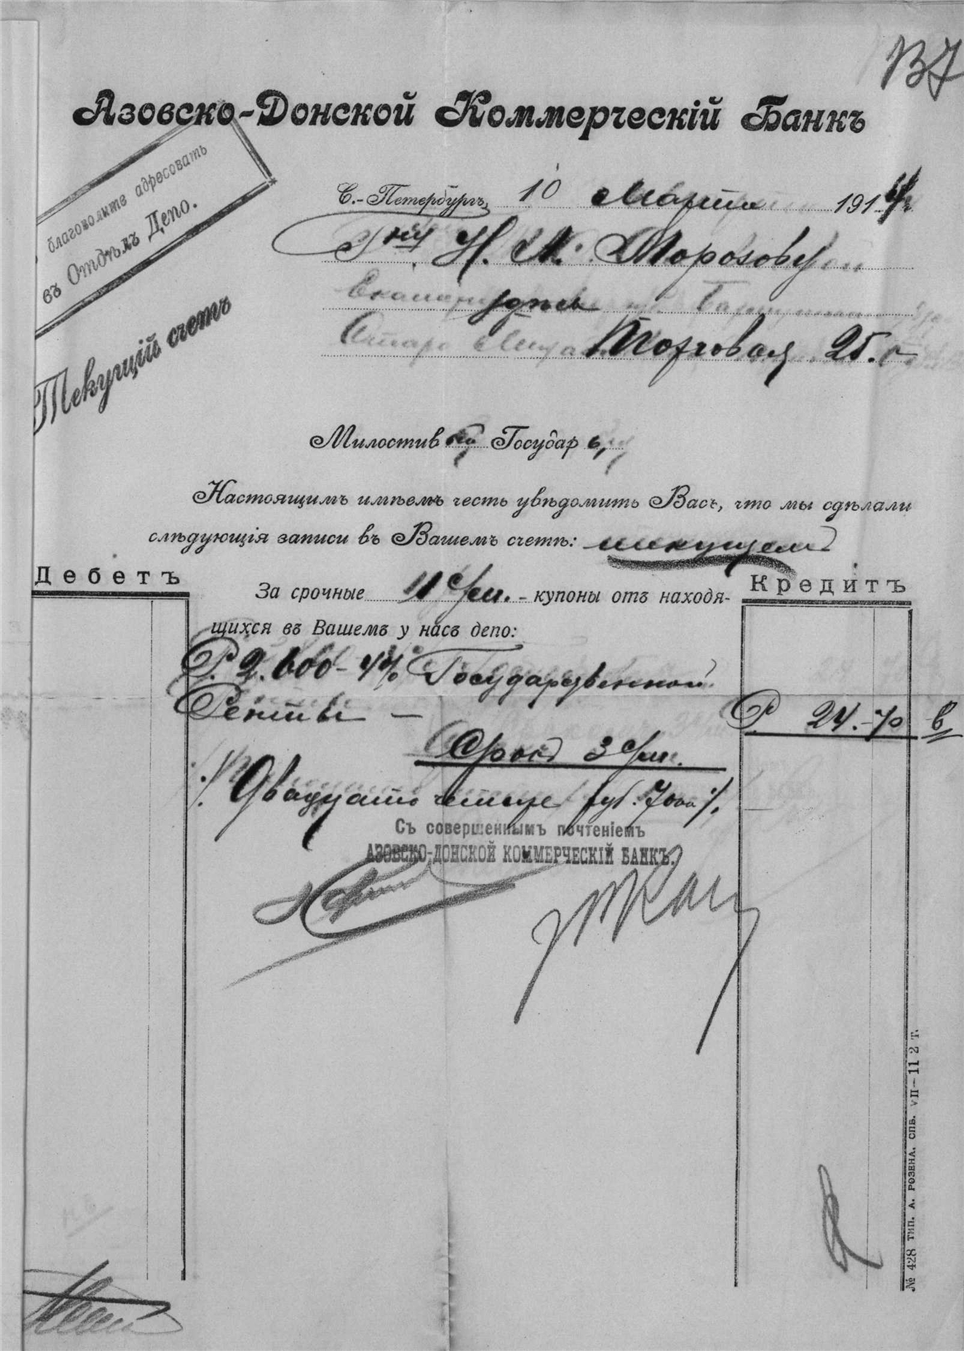 В7
Азовско-Донской Коммерческій Банкъ
благоволите адресовать
въ Отдѣлъ Депо.
Текущій счетъ
С.-Петербургъ, 10 Марта 1914
Г-ну Н. А. Морозову
здѣсь
Торговая 25.
Милостивый Государь,
Настоящимъ имѣемъ честь увѣдомить Васъ, что мы сдѣлали
слѣдующія записи въ Вашемъ счетѣ: текущемъ
Дебетъ
Кредитъ
За срочные 1 с/м. - купоны отъ находя-
щихся въ Вашемъ у насъ депо:
Р. 2.600 - 4% Государственной
Ренты —
Р. 24.-70
в
Срокъ 3 с/м.
./. Двадцать четыре руб. 70 к. /.
Съ совершеннымъ почтеніемъ
АЗОВСКО-ДОНСКОЙ КОММЕРЧЕСКІЙ БАНКЪ.
№ 428 ТИП. А. РОЗЕНА. СПБ. VII—11 2 т.